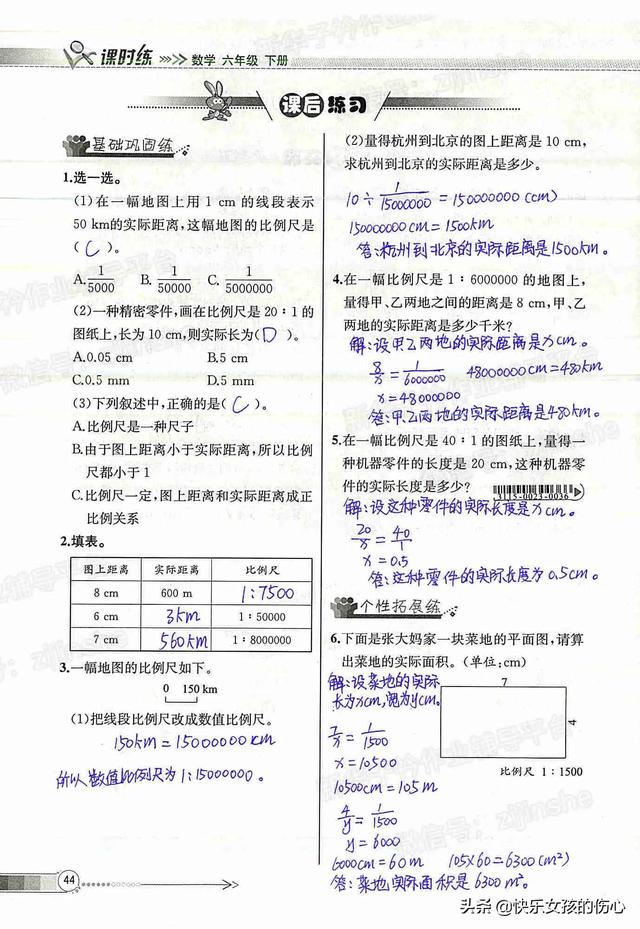 课时练 >>>> 数学 六年级 下册
课后练习
基础巩固练
1.选一选。
(1)在一幅地图上用 1 cm 的线段表示
50 km的实际距离,这幅地图的比例尺是
( C )。
A. 1/5000 B. 1/50000 C. 1/5000000
(2)一种精密零件,画在比例尺是 20∶1 的
图纸上,长为 10 cm,则实际长为( D )。
A.0.05 cm B.5 cm
C.0.5 mm D.5 mm
(3)下列叙述中,正确的是( C )。
A.比例尺是一种尺子
B.由于图上距离小于实际距离,所以比例
尺都小于 1
C.比例尺一定,图上距离和实际距离成正
比例关系
2.填表。
图上距离 实际距离 比例尺
8 cm 600 m 1:7500
6 cm 3km 1∶50000
7 cm 560km 1∶8000000
3.一幅地图的比例尺如下。
0 150 km
(1)把线段比例尺改成数值比例尺。
150km=15000000cm
所以数值比例尺为1:15000000。
44
(2)量得杭州到北京的图上距离是 10 cm,
求杭州到北京的实际距离是多少。
10÷1/15000000=150000000(cm)
150000000cm=1500km
答:杭州到北京的实际距离是1500km。
4.在一幅比例尺是 1∶6000000 的地图上,
量得甲、乙两地之间的距离是 8 cm,甲、乙
两地的实际距离是多少千米?
解:设甲乙两地的实际距离是xcm。
8/x=1/6000000 48000000cm=480km
x=48000000
答:甲乙两地的实际距离是480km。
5.在一幅比例尺是 40∶1 的图纸上,量得一
种机器零件的长度是 20 cm,这种机器零
件的实际长度是多少?
X1J5-0023-0036
解:设这种零件的实际长度是xcm。
20/x=40/1
x=0.5
答:这种零件的实际长度为0.5cm。
个性拓展练
6.下面是张大妈家一块菜地的平面图,请算
出菜地的实际面积。(单位:cm)
7
4
比例尺 1∶1500
解:设菜地的实际
长为xcm,宽为ycm。
7/x=1/1500
x=10500
10500cm=105m
4/y=1/1500
y=6000
6000cm=60m 105×60=6300(m²)
答:菜地实际面积是6300m²。
头条 @快乐女孩的伤心